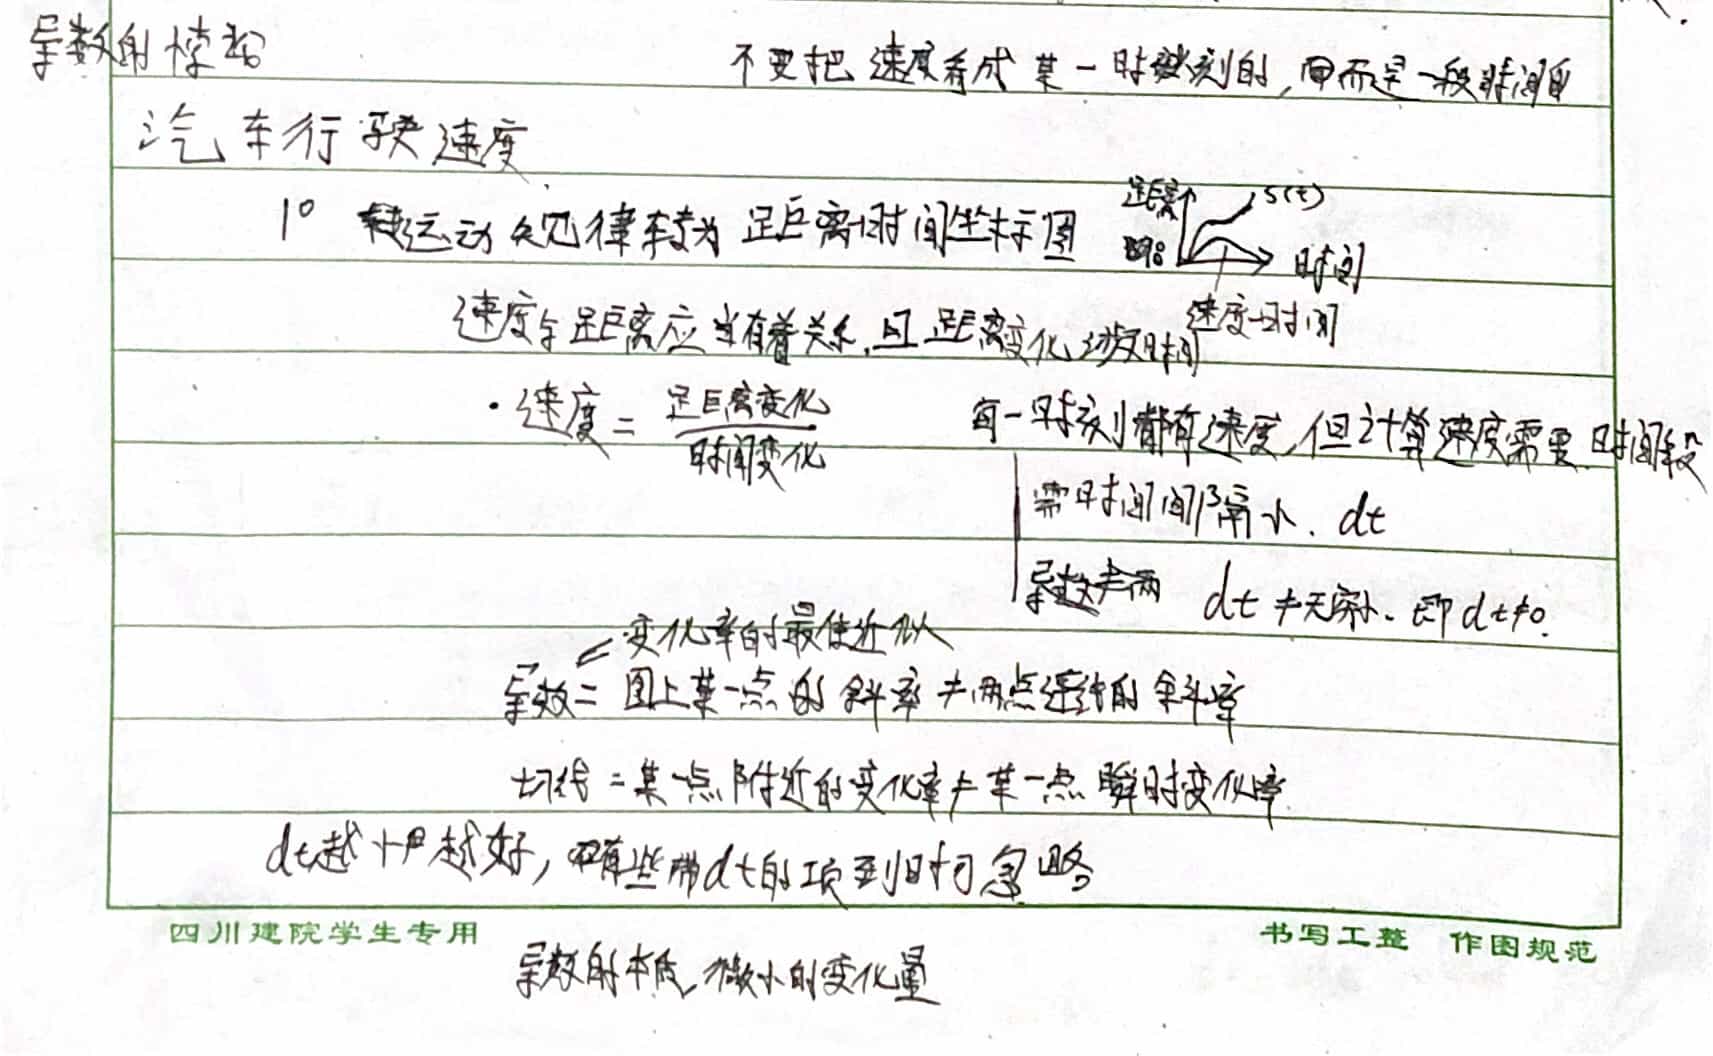 导数的悖论
不要把速度看成某一时刻的,而是一段时间的
汽车行驶速度
1° 把运动规律转为距离-时间坐标图
距离 s(t)
时间
速度-时间
速度与距离应当有着关系,且距离变化涉及时间
·速度=距离变化/时间变化
每一时刻都有速度,但计算速度需要时间段
需时间间隔小. dt
导数 dt≠无穷小.即dt≠0.
变化率的最佳近似
导数=图上某一点的斜率≠两点连线的斜率
切线=某一点附近的变化率≠某一点瞬时变化率.
dt越小越好,有些带dt的项到时可忽略
四川建院学生专用
书写工整 作图规范
导数的本质,微小的变化量